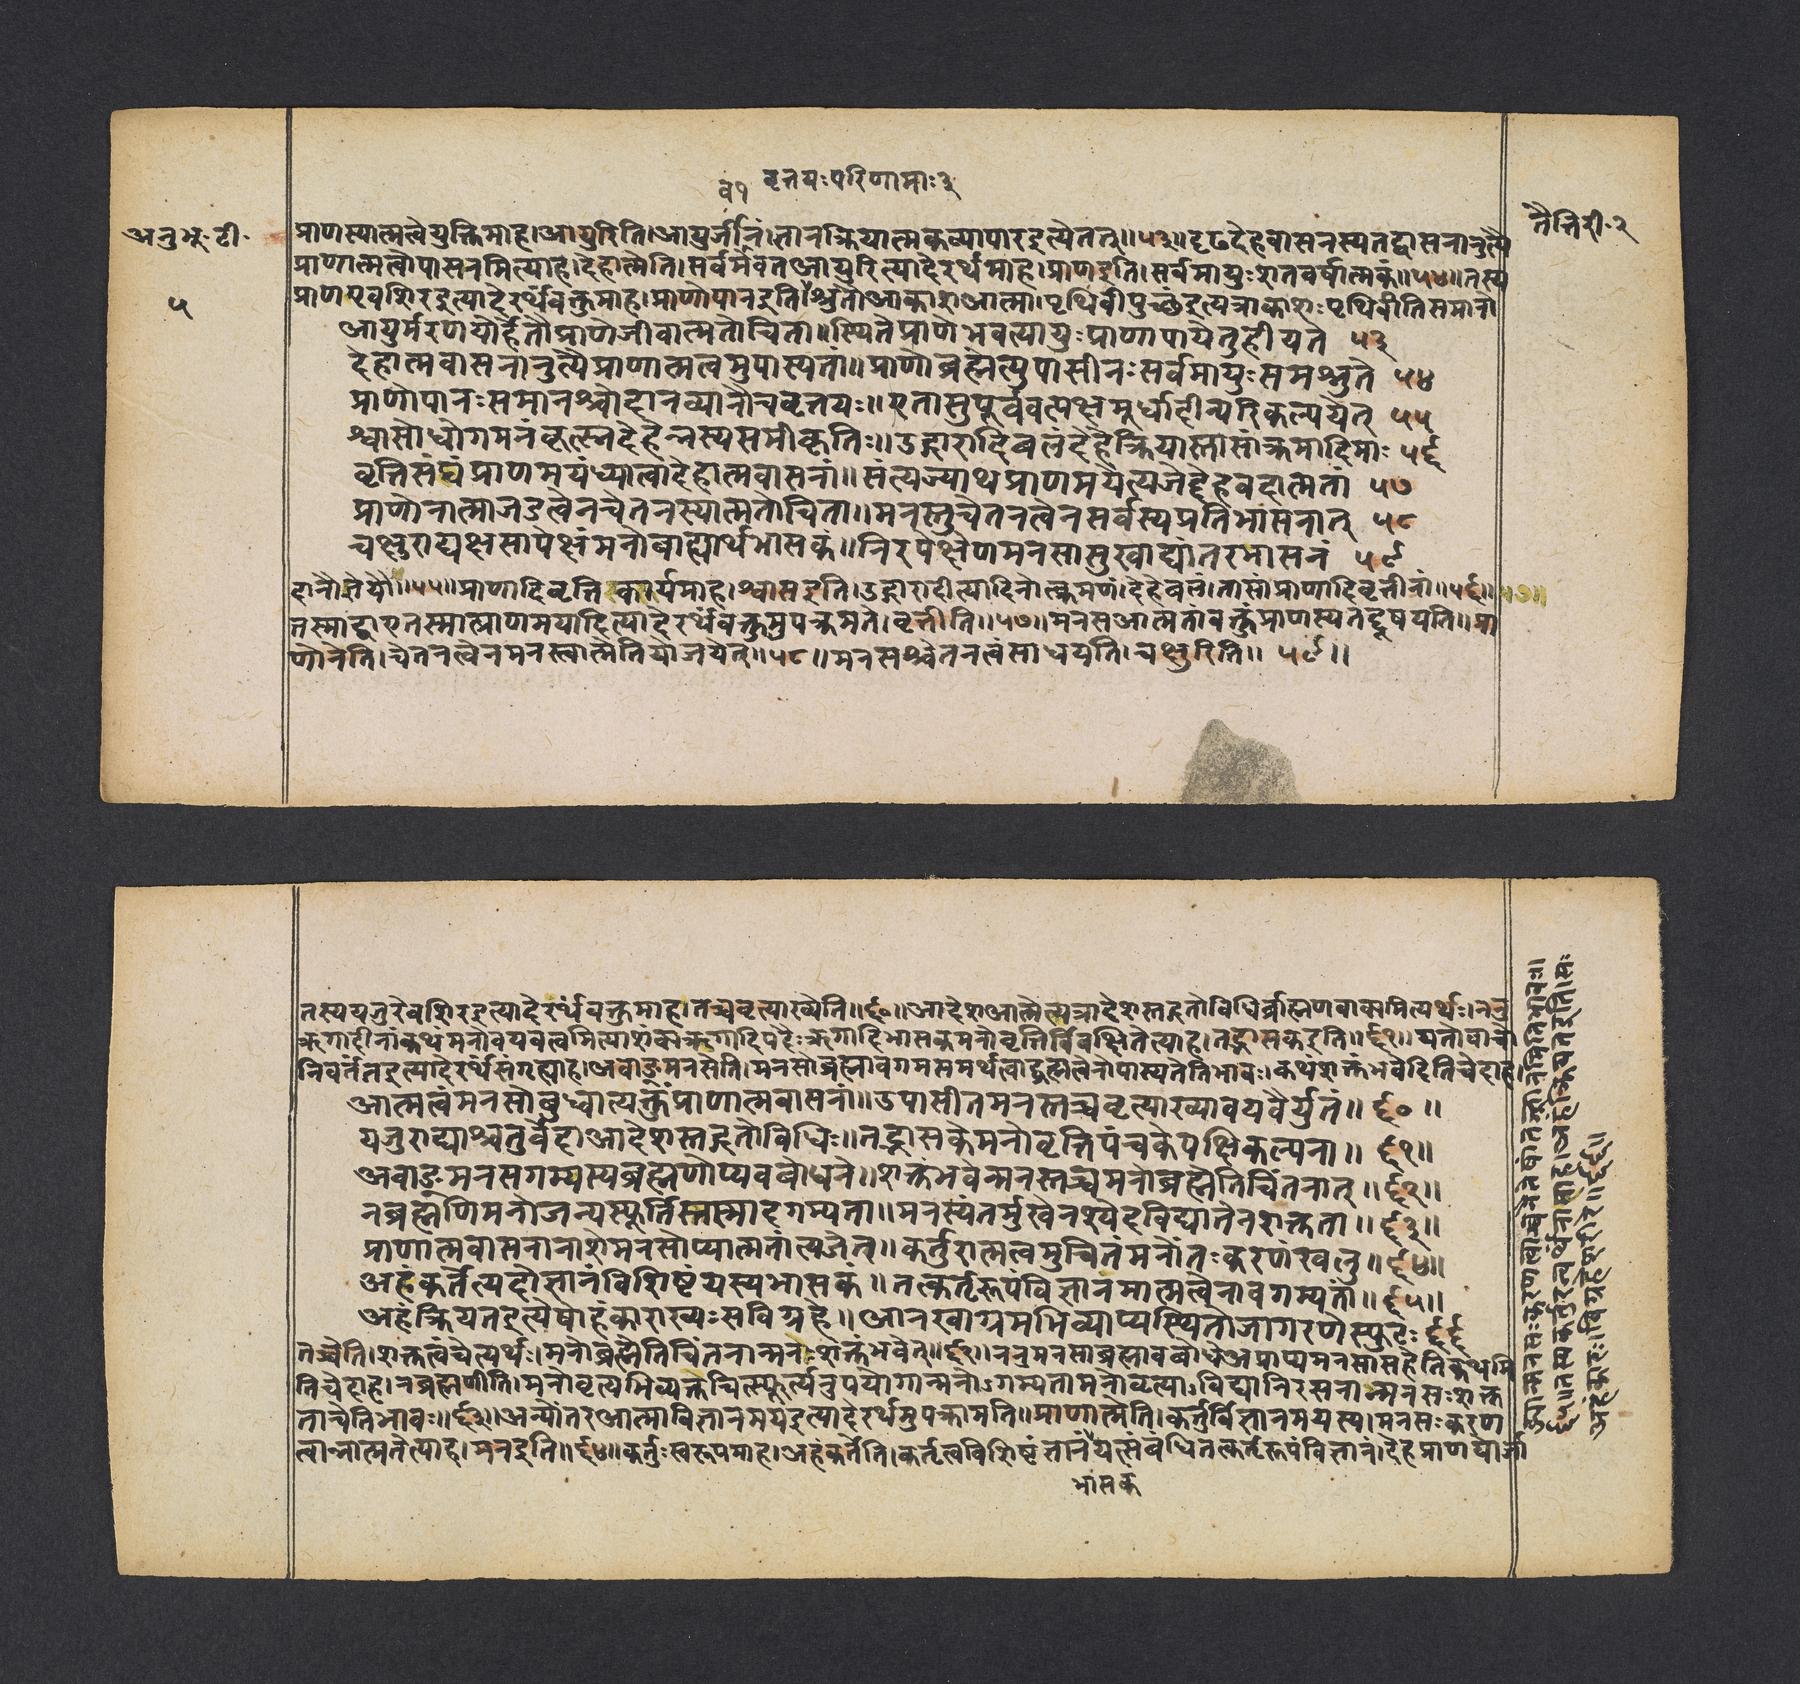 व१ वृत्तयःपरिणामाः३
अनुभू.टी.
तैत्तिरी.२
५
प्राणस्यात्मत्वेयुक्तिमाह।आयुरिति।आयुर्जीनं।ज्ञानक्रियात्मकव्यापारइत्येतत्॥५३॥दृढदेहवासनस्यतद्वासनानुत्यै
प्राणात्मत्वोपासनमित्याह।देहात्मेति।सर्वमेवतआयुरित्यादेरर्थमाह।प्राणइति।सर्वमायुःशतवर्षात्मकं॥५४॥तस्य
प्राणएवशिरइत्यादेरर्थंवक्तुमाह।प्राणोपानइति।श्रुतौआकाशआत्मा।पृथिवीपुच्छंइत्यत्राकाशःपृथिवीतिसमानो
आयुर्मरणयोर्हेतौप्राणेजीवात्मतोचिता॥स्थितेप्राणेभवत्यायुःप्राणापायेतुहीयते ५३
देहात्मवासनानुत्यैप्राणात्मत्वमुपास्यतां॥प्राणोब्रह्मेत्युपासीनःसर्वमायुःसमश्नुते ५४
प्राणोपानःसमानश्चोदानव्यानौचवृत्तयः॥एतासुपूर्ववत्पक्षमूर्धादीन्परिकल्पयेत् ५५
श्वासोधोगमनंकृत्स्नदेहेन्नस्यसमीकृतिः॥उद्गारादिबलंदेहेक्रियास्तासांक्रमादिमाः ५६
वृत्तिसंघंप्राणमयंध्यात्वादेहात्मवासनां॥संत्यज्याथप्राणमयेत्यजेद्देहवदात्मतां ५७
प्राणोनात्माजडत्वेनचेतनस्यात्मतोचिता॥मनस्तुचेतनत्वेनसर्वस्यप्रतिभासनात् ५८
चक्षुराद्यक्षसापेक्षंमनोबाह्यार्थभासकं॥निरपेक्षेणमनसासुखाद्यांतरभासनं ५९
दानौज्ञेयौ॥५५॥प्राणादिवृत्तिकार्यमाह।श्वासइति।उद्गारादीत्यादिनोत्क्रमणं।देहेबलं।तासांप्राणादिवृत्तीनां॥५६॥५७॥
तस्माद्वाएतस्मात्प्राणमयादित्यादेरर्थंवक्तुमुपक्रमते।वृत्तीति॥५७॥मनसआत्मतांवक्तुंप्राणस्यतद्दूषयति॥प्रा
णोनेति।चेतनत्वेनमनस्त्वात्मेतियोजयेत्॥५८॥मनसश्चेतनत्वंसाधयति।चक्षुरिति॥ ५९॥
तस्ययजुरेवशिरइत्यादेरर्थंवक्तुमाह।तच्चवृत्याख्येति॥६०॥आदेशआत्मेत्यत्रादेशस्तद्गतोविधिर्ब्राह्मणवाक्यमित्यर्थः।ननु
ऋगादीनांकथंमनोवयवत्वमित्याशंक्यऋगादिपदैःऋगादिभासकमनोवृत्तिर्विवक्षितेत्याह।तद्भासकइति॥६१॥यतोवाचो
निवर्तंतइत्यादेरर्थंसंगृह्याह।अवाङ्मनसेति।मनसोब्रह्मावगमसमर्थत्वाद्ब्रह्मत्वेनोपास्यतेतिभावः।कथंशांतंभवेदितिचेदाह।
आत्मत्वंमनसोबुध्वात्यक्तुंप्राणात्मवासनां॥उपासीतमनस्तच्चवृत्याख्यावयवैर्युतं॥६०॥
यजुराद्याश्चतुर्वेदाआदेशस्तद्गतोविधिः॥तद्भासकेमनोवृत्तिपंचकेपक्षिकल्पना॥६१॥
अवाङ्मनसगम्यस्यब्रह्मणोप्यवबोधने॥शक्तंभवेन्मनस्तच्चमनोब्रह्मेतिचिंतनात्॥६२॥
नब्रह्मणिमनोजन्यस्फूर्तिस्तस्मादगम्यता॥मनस्यंतर्मुखेनश्येदविद्यातेनशक्तता॥६३॥
प्राणात्मवासनानाशेमनसोप्यात्मतांत्यजेत्॥कर्तुरात्मत्वमुचितंमनोंतःकरणंखलु॥६४॥
अहंकर्तेत्यदोज्ञानंविशिष्टंयस्यभासकं॥तत्कर्तृरूपंविज्ञानमात्मत्वेनावगम्यतां॥६५॥
अहंक्रियतइत्येषोहंकाराख्यःसविग्रहे॥आनखाग्रमभिव्याप्यस्थितोजागरणेस्फुटः ६६
तच्चेति।शक्तत्वंचेत्यर्थः।मनोब्रह्मेतिचिंतनान्मनःशक्तंभवेत्॥६२॥ननुमनसाब्रह्मावबोधेअप्राप्यमनसासहेतिकथमि
तिचेदाह।नब्रह्मणीति।मनोवृत्यभिव्यक्तचित्स्फूर्त्यनुपयोगान्मनोऽगम्यतामनोवृत्याऽविद्यानिरसनान्मनसःशक्त
ताचेतिभावः॥६३॥अन्योंतरआत्माविज्ञानमयइत्यादेरर्थमुपक्रामति॥प्राणात्मेति।कर्तुर्विज्ञानमयस्य।मनसःकरण
त्वान्नात्मतेत्याह।मनइति॥६४॥कर्तुःस्वरूपमाह।अहंकर्तेति।कर्तृत्वविशिष्टंज्ञानंयत्संबंधितत्कर्तृरूपंविज्ञानं।देहप्राणयोर्जा
भासक